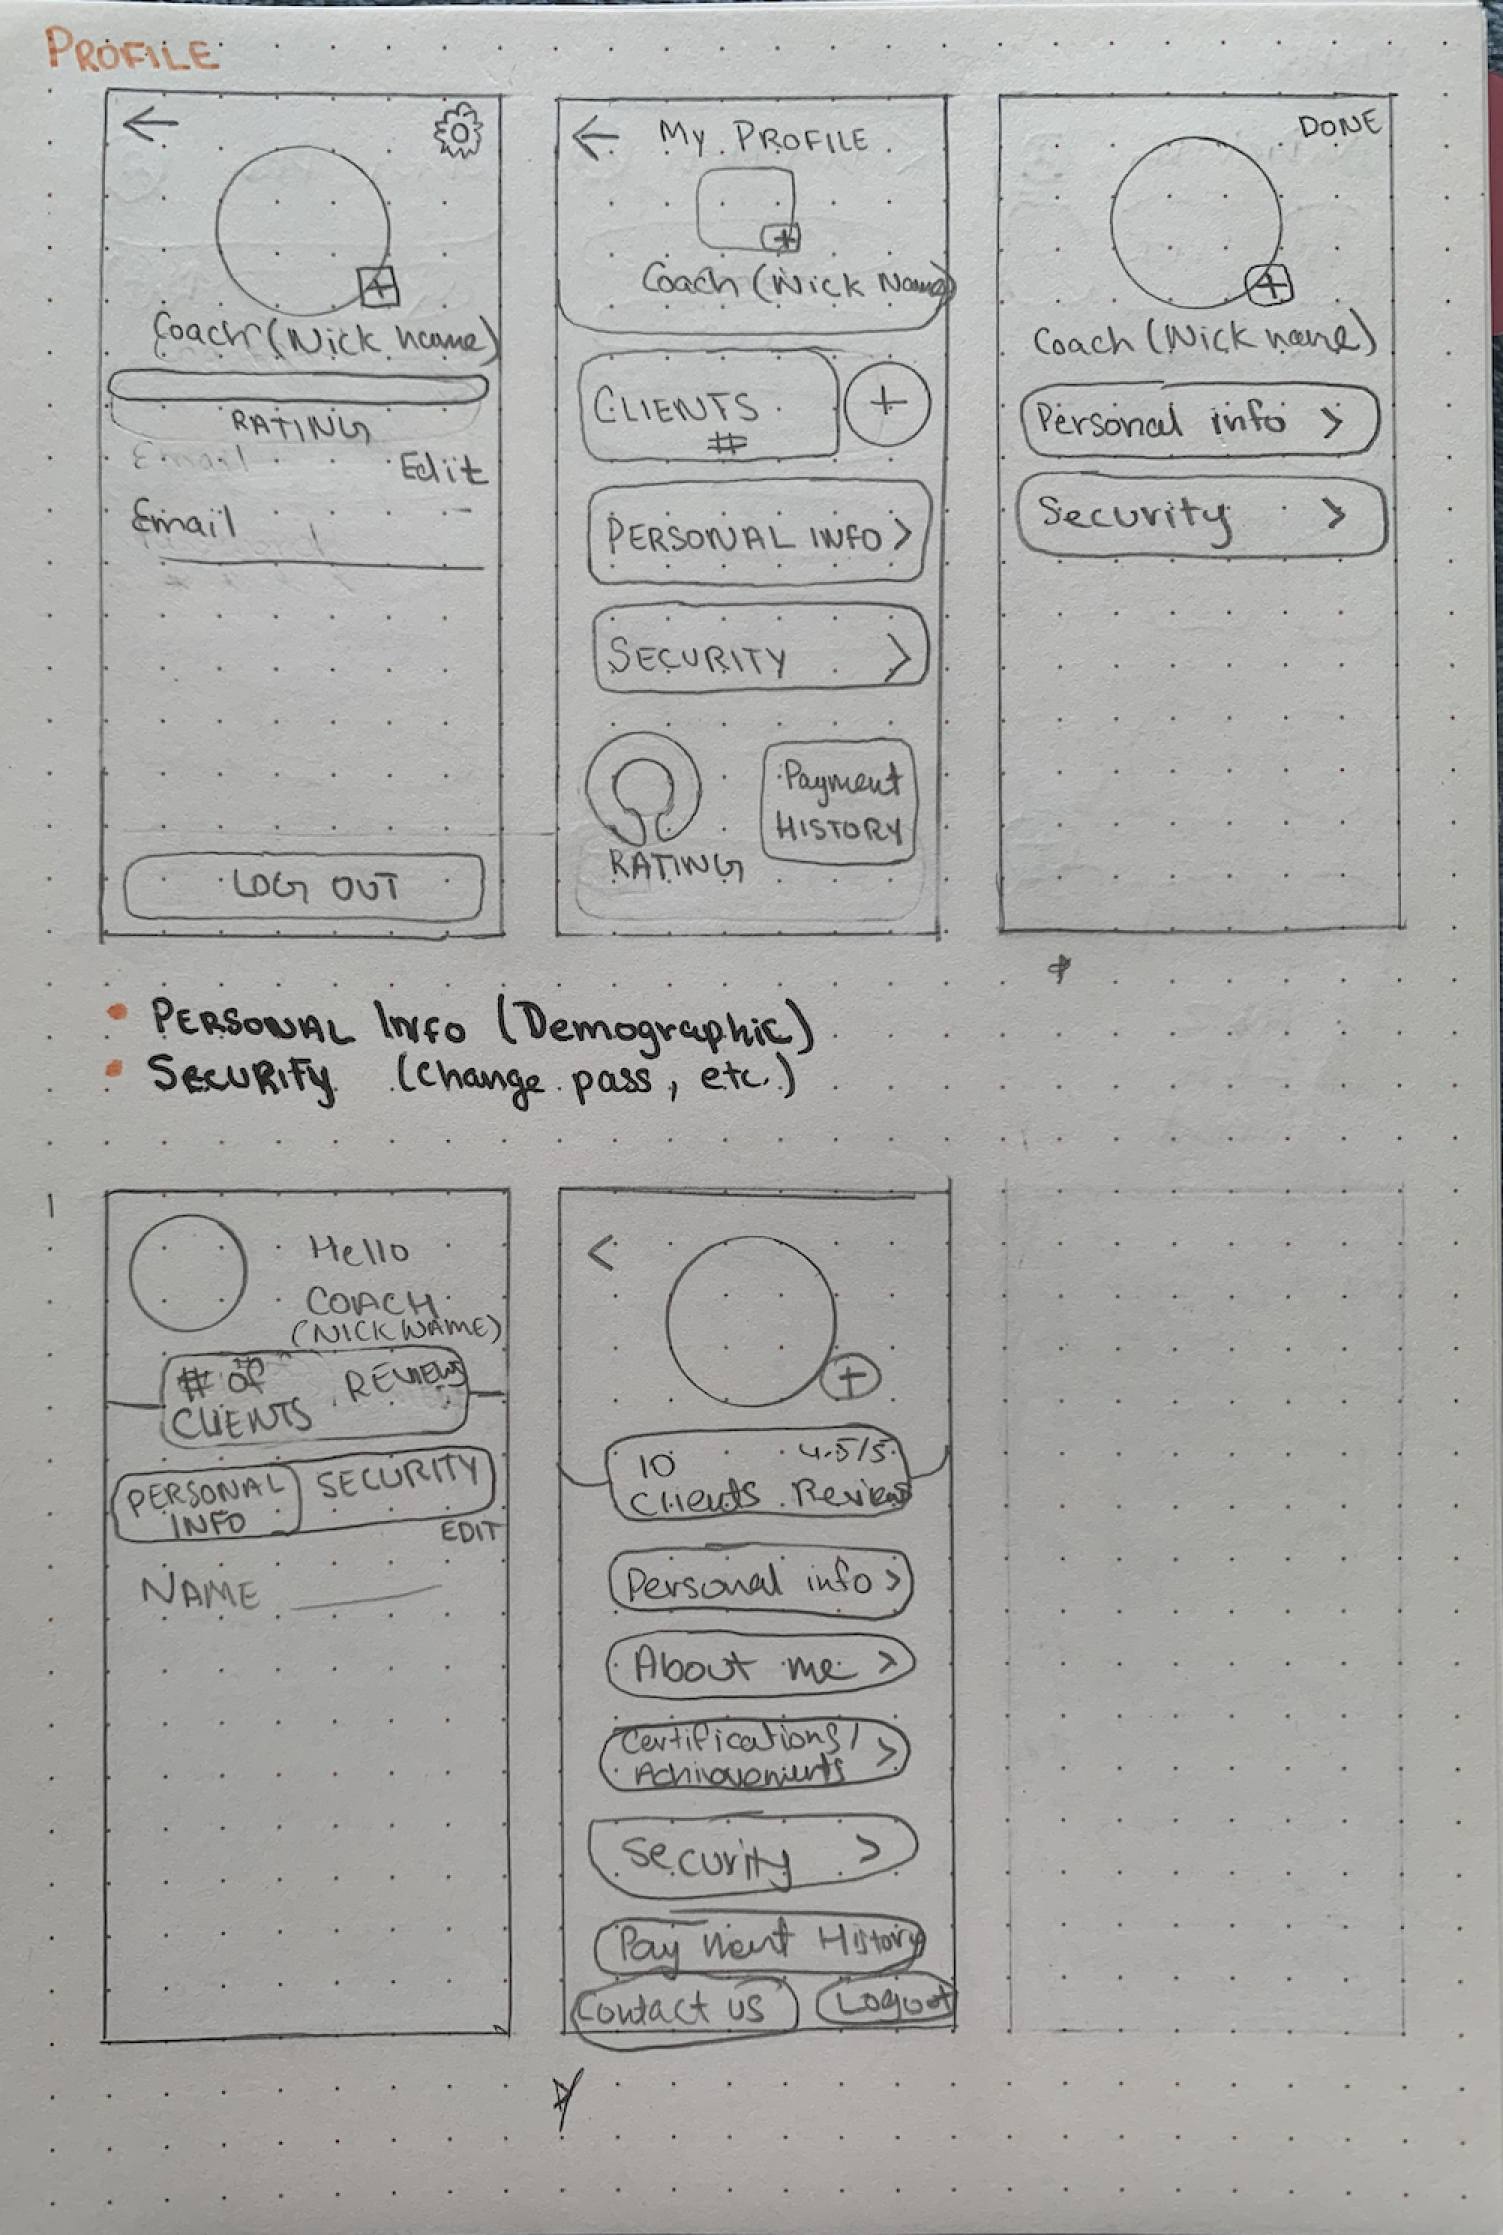 PROFILE
Coach (Nick name)
RATING
Email
Edit
Email
LOG OUT
My PROFILE
Coach (Nick Name)
CLIENTS
#
+
PERSONAL INFO >
SECURITY >
RATING
Payment
HISTORY
DONE
Coach (Nick name)
Personal info >
Security >
• PERSONAL Info (Demographic)
• SECURITY (Change pass, etc.)
1
Hello
COACH
(NICK NAME)
# of REVIEWS
CLIENTS
PERSONAL SECURITY
INFO
EDIT
NAME
<
+
10 4.5/5
Clients Reviews
Personal info >
About me >
Certifications/
Achievements >
Security >
Payment History
Contact us Logout